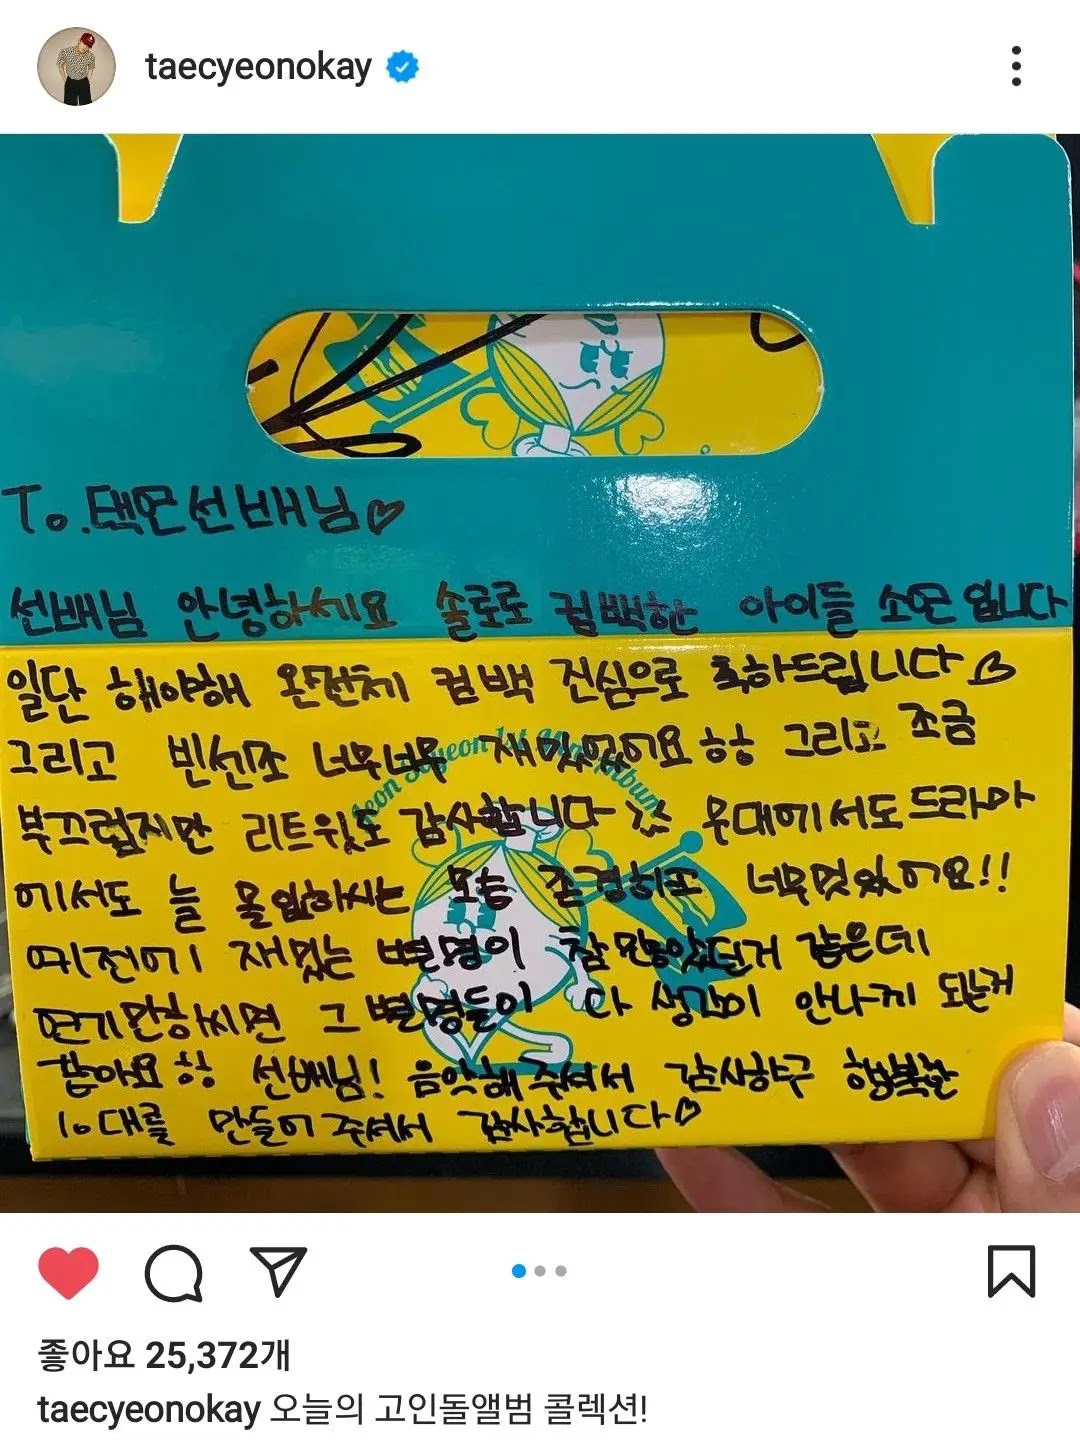 taecyeonokay
To. 택연선배님♡
선배님 안녕하세요 솔로로 컴백한 아이들 소연입니다
일단 해야해 완전체 컴백 진심으로 축하드립니다♡
그리고 빈센조 너무너무 재밌었어요 ㅎㅎ 그리고 조금
부끄럽지만 리트윗도 감사합니다 무대에서도 드라마
에서도 늘 몰입하시는 모습 존경하고 너무멋있어요!!
예전에 재밌는 별명이 참 많았던거 같은데
연기만하시면 그 별명들이 다 생각이 안나게 되는거
같아요 ㅎㅎ 선배님! 음악해주셔서 감사하구 행복한
10대를 만들어주셔서 감사합니다♡
Jeon Soyeon 1st Mini Album
좋아요 25,372개
taecyeonokay 오늘의 고인돌앨범 콜렉션!